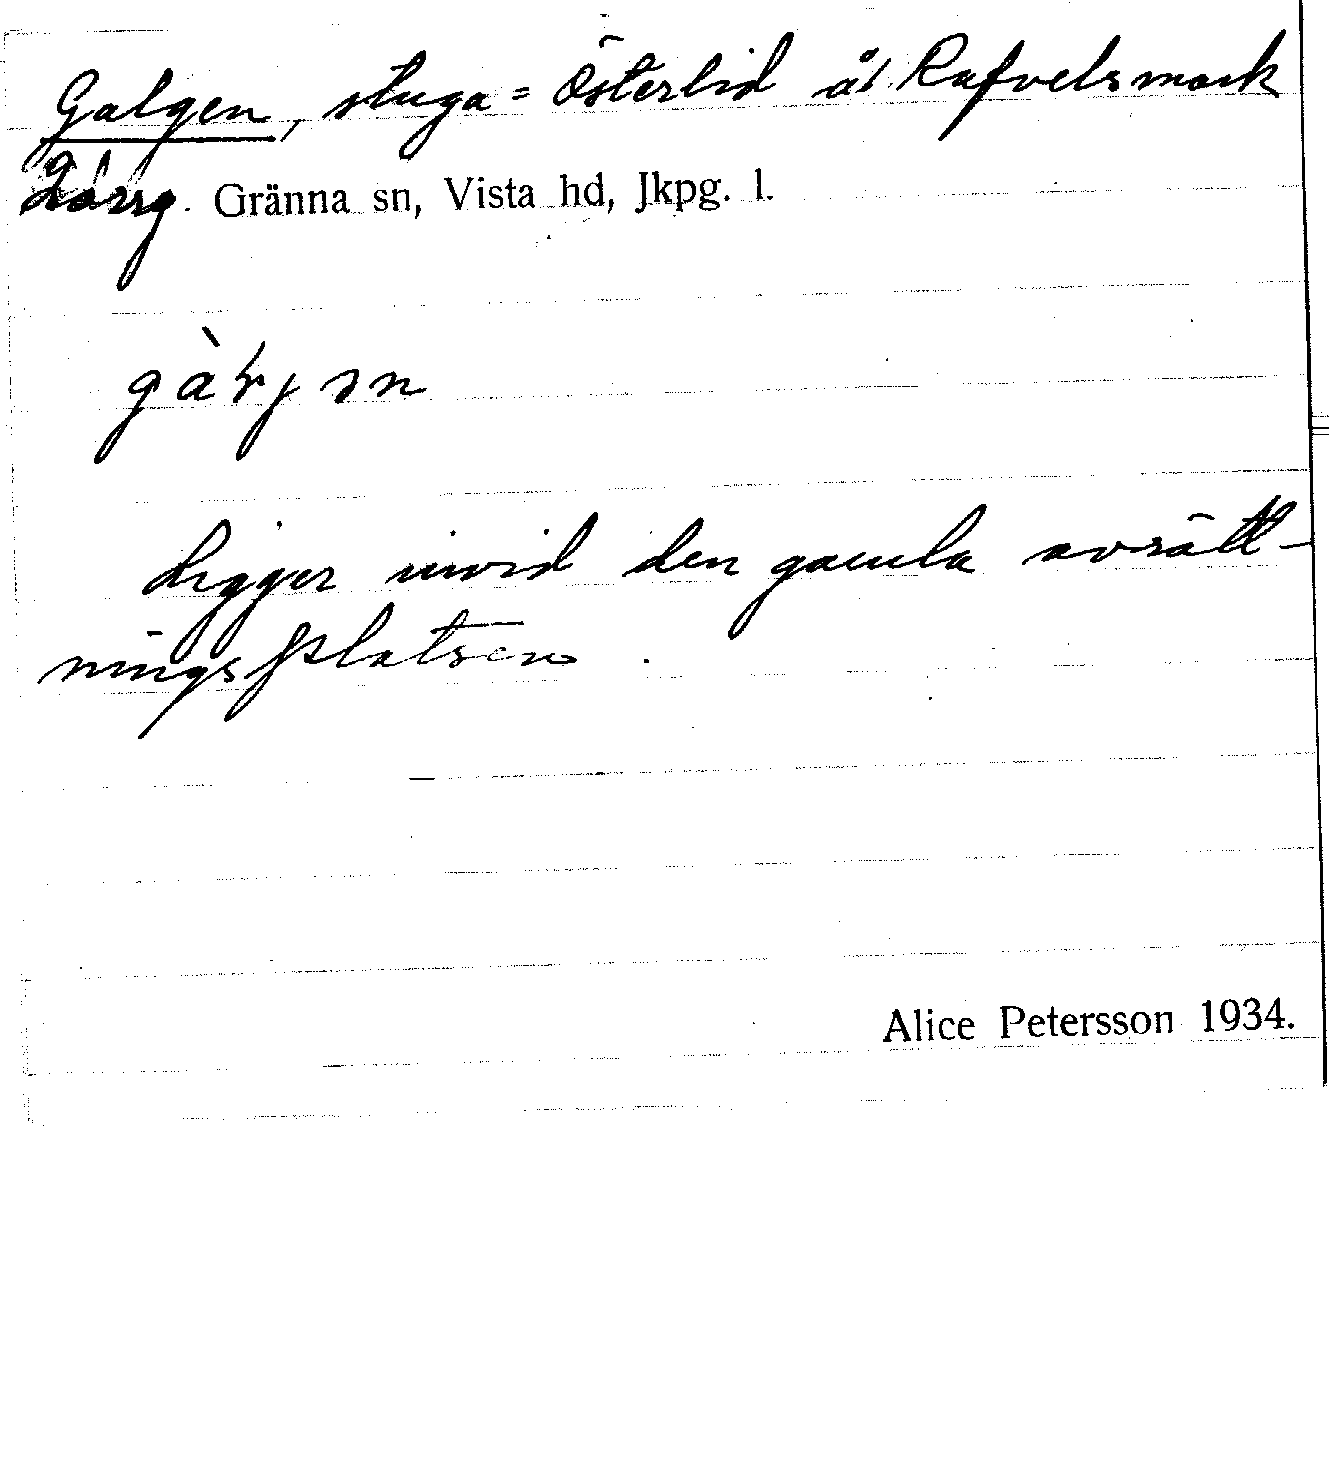 Galgen, stuga = Österlid å Rafvelsmark
Gränna sn, Vista hd, Jkpg. l.
Ligger invid den gamla avrätt-
ningsplatsen.
Alice Petersson 1934.